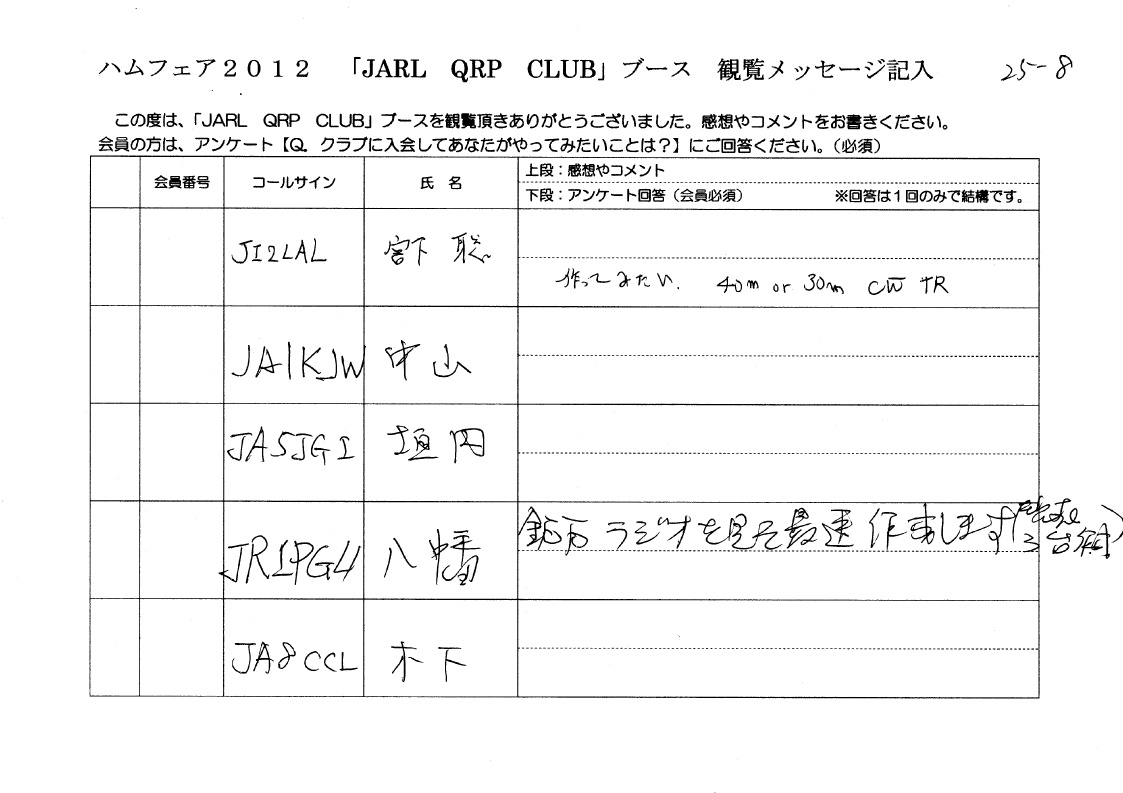 ハムフェア２０１２　「JARL　QRP　CLUB」ブース　観覧メッセージ記入　25-8
この度は、「JARL　QRP　CLUB」ブースを観覧頂きありがとうございました。感想やコメントをお書きください。
会員の方は、アンケート【Q.　クラブに入会してあなたがやってみたいことは？】にご回答ください。（必須）
会員番号　コールサイン　氏　名　上段：感想やコメント
下段：アンケート回答（会員必須）　※回答は１回のみで結構です。
JI2LAL　宮下 聡
作ってみたい. 40m or 30m CW TR
JA1KJW　中山
JA5JGI
鉱石ラジオを見て最速 作成します
八幡
JA8CCL　木下